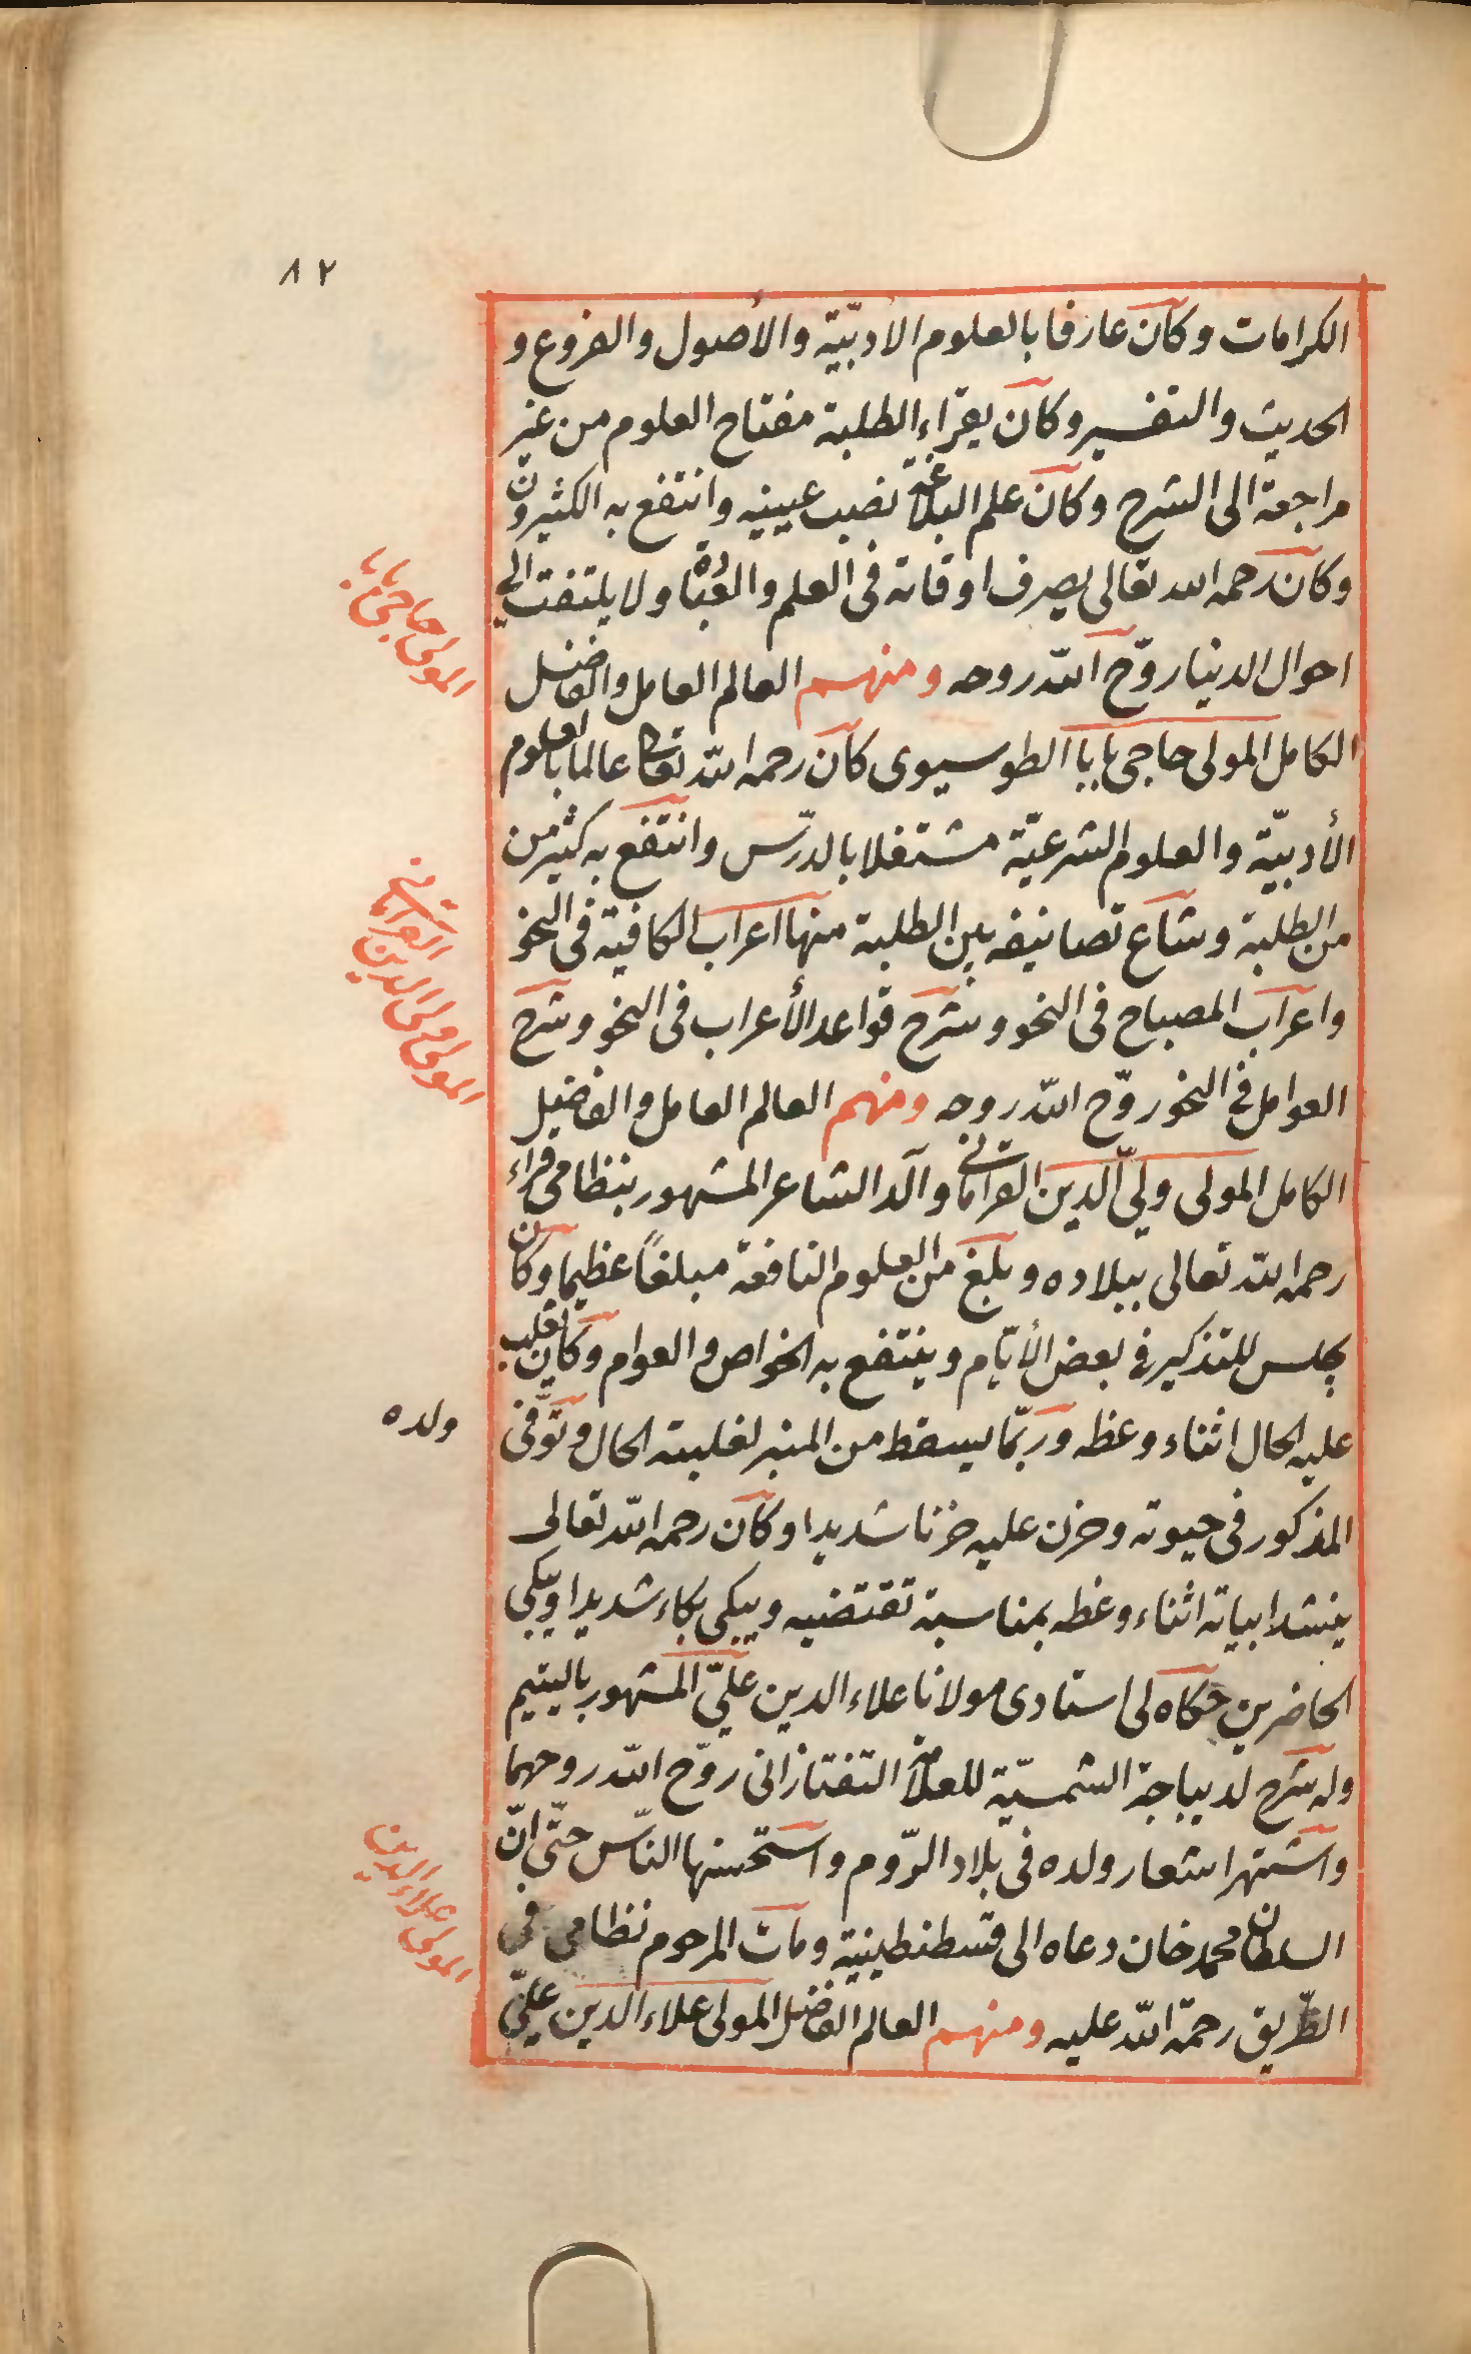 ٨٢
الكرامات وكان عارفا بالعلوم الادبيّة والأصول والفروع و
الحديث والتفسير وكان يقراء الطلبة مفتاح العلوم من غير
مراجعة الى الشرح وكان علم البلاغة نصب عينيه وانتفع به الكثيرون
وكان رحمه الله تعالى يصرف اوقاته فى العلم والعبادة ولا يلتفت الى
احوال الدنيا روّح الله روحه ومنهم العالم العامل والفاضل
الكامل المولى حاجى بابا الطوسيوى كان رحمه الله تعالى عالما بالعلوم
الأدبيّة والعلوم الشرعيّة مشتغلا بالدرّس وانتفع به كثير من
من الطلبة وشاع تصانيفه بين الطلبة منها اعراب الكافية فى النحو
واعراب المصباح فى النحو وشرح قواعد الأعراب فى النحو وشرح
العوامل فى النحو روّح الله روحه ومنهم العالم العامل والفاضل
الكامل المولى ولىّ الدين القرامانى والد الشاعر المشهور بنظامى قراء
رحمه الله تعالى ببلاده وبلغ من العلوم النافعة مبلغاً عظيما وكان
يجلس للتذكير فى بعض الأيّام وينتفع به الخواص والعوام وكان يغلب
عليه الحال اثناء وعظه وربّما يسقط من المنبر لغلبته الحال وتوّفى
ولده
المذكور فى حيوته وحزن عليه حزنا شديدا وكان رحمه الله تعالى
ينشد ابياته اثناء وعظه بمناسبة تقتضيه ويبكى بكاء شديدا ويبكى
الحاضرين حكاه لى استادى مولانا علاء الدين علىّ المشهور باليتيم
وله شرح لديباجة الشمسيّة للعلامة التفتازانى روّح الله روحهما
واشتهر اشعار ولده فى بلاد الرّوم واستحسنها النّاس حتّى انّ
السلطان محمد خان دعاه الى قسطنطينية ومات المرحوم نظامى فى
الطّريق رحمة الله عليه ومنهم العالم الفاضل المولى علاء الدين علىّ
المولى حاجى بابا
المولى ولى الدين
القرامانى
المولى علاء الدين